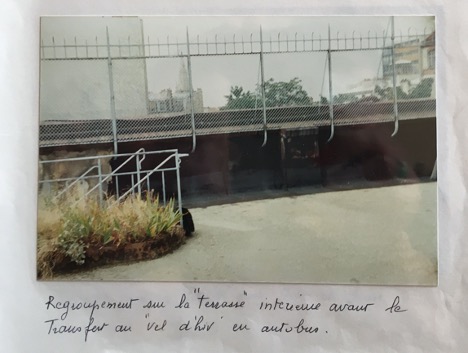 Regroupement sur la "terrasse" interieure avant le
Transfert au "vel d'hiv" en autobus.